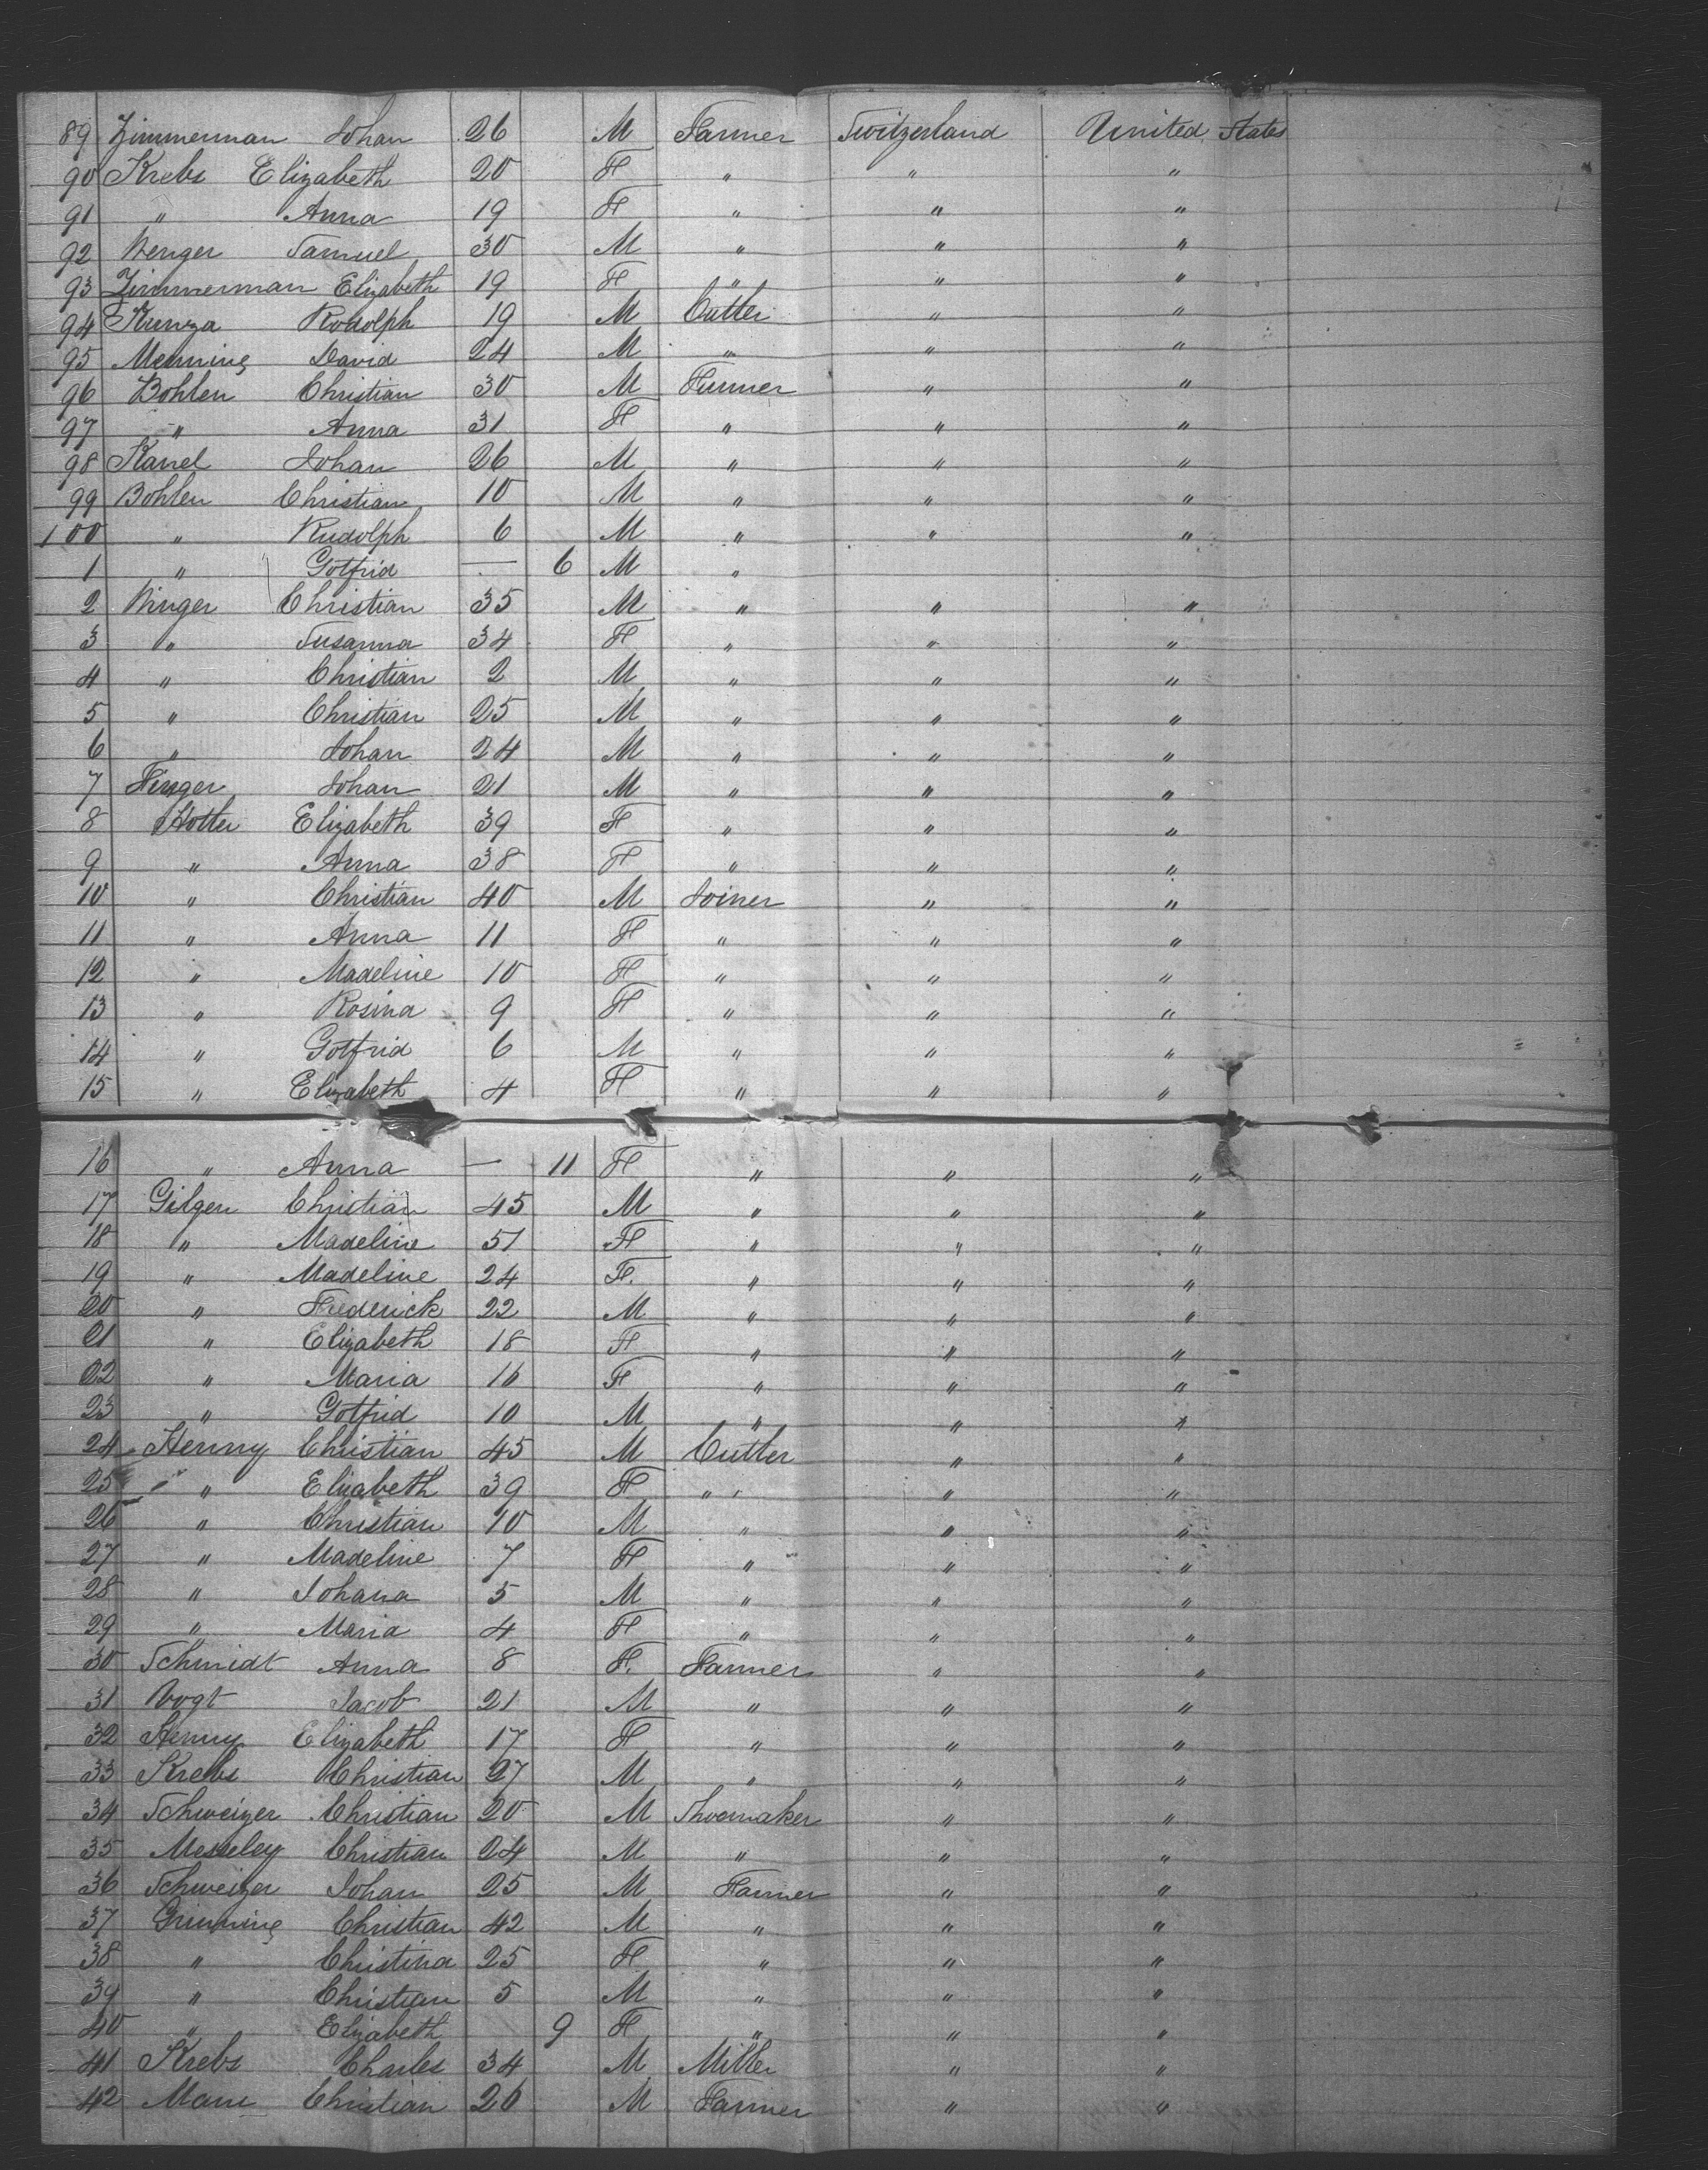 89 Zimmerman Johan 26 M Farmer Switzerland United States
90 Krebs Elizabeth 20 F " " "
91 " Anna 19 F " " "
92 Wenger Samuel 30 M " " "
93 Zimmerman Elizabeth 19 F " " "
94 Kunza Rodolph 19 M Cutler " "
95 David 24 M " " "
96 Bohlen Christian 30 M Farmer " "
97 " Anna 31 F " " "
98 Kanel Johan 26 M " " "
99 Bohlen Christian 10 M " " "
100 " Rudolph 6 M " " "
1 " Gotfrid — 6 M "
2 Winger Christian 35 M " " "
3 " Susanna 34 F " " "
4 " Christian 2 M " " "
5 " Christian 25 M " " "
6 " Johan 24 M " " "
7 Finger Johan 21 M " " "
8 Elizabeth 39 F " " "
9 " Anna 38 F " " "
10 " Christian 40 M Joiner " "
11 " Anna 11 F " " "
12 " Madeline 10 F " " "
13 " Rosina 9 F " " "
14 " Gotfrid 6 M " " "
15 " Elizabeth 4 F " " "
16 " Anna — 11 F " " "
17 Gilgen Christian 45 M " " "
18 " Madeline 51 F " " "
19 " Madeline 24 F. " " "
20 " Frederick 22 M " " "
21 " Elizabeth 18 F " " "
22 " Maria 16 F " " "
23 " Gotfrid 10 M " " "
24 Henny Christian 45 M Cutler " "
25 " Elizabeth 39 F " " "
26 " Christian 10 M " " "
27 " Madeline 7 F " " "
28 " Johana 5 M " " "
29 " Maria 4 F " " "
30 Schmidt Anna 8 F. Farmer " "
31 Vogt Jacob 21 M " " "
32 Henny Elizabeth 17 F " " "
33 Krebs Christian 27 M " " "
34 Schweizer Christian 20 M Shoemaker " "
35 Messeley Christian 24 M " " "
36 Schweizer Johan 25 M Farmer " "
37 Christian 42 M " " "
38 " Christina 25 F " " "
39 " Christian 5 M " " "
40 " Elizabeth 9 F " " "
41 Krebs Charles 34 M Miller " "
42 Christian 26 M Farmer " "